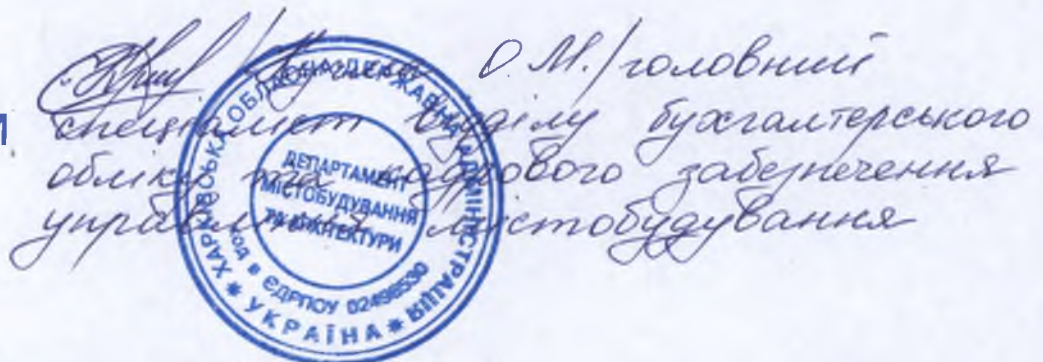 О.М./головний
спеціалист відділу бухгалтерського
обліку та кадрового забезпечення
управління містобудування
ХАРКІВСЬКА ОБЛАСНА ДЕРЖАВНА АДМІНІСТРАЦІЯ
* УКРАЇНА *
ДЕПАРТАМЕНТ
МІСТОБУДУВАННЯ
ТА АРХІТЕКТУРИ
код в ЄДРПОУ